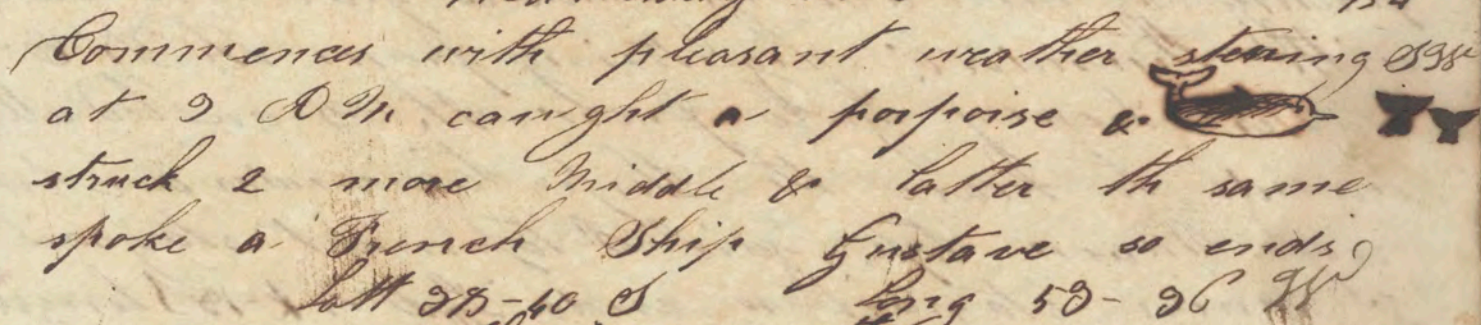 Commences with pleasant weather stering SSW
at 3 P M caught a porpoise &
struck 2 more Middle & latter th same
spoke a French Ship Gustave so ends
Latt 38-40 S Long 53-36 W